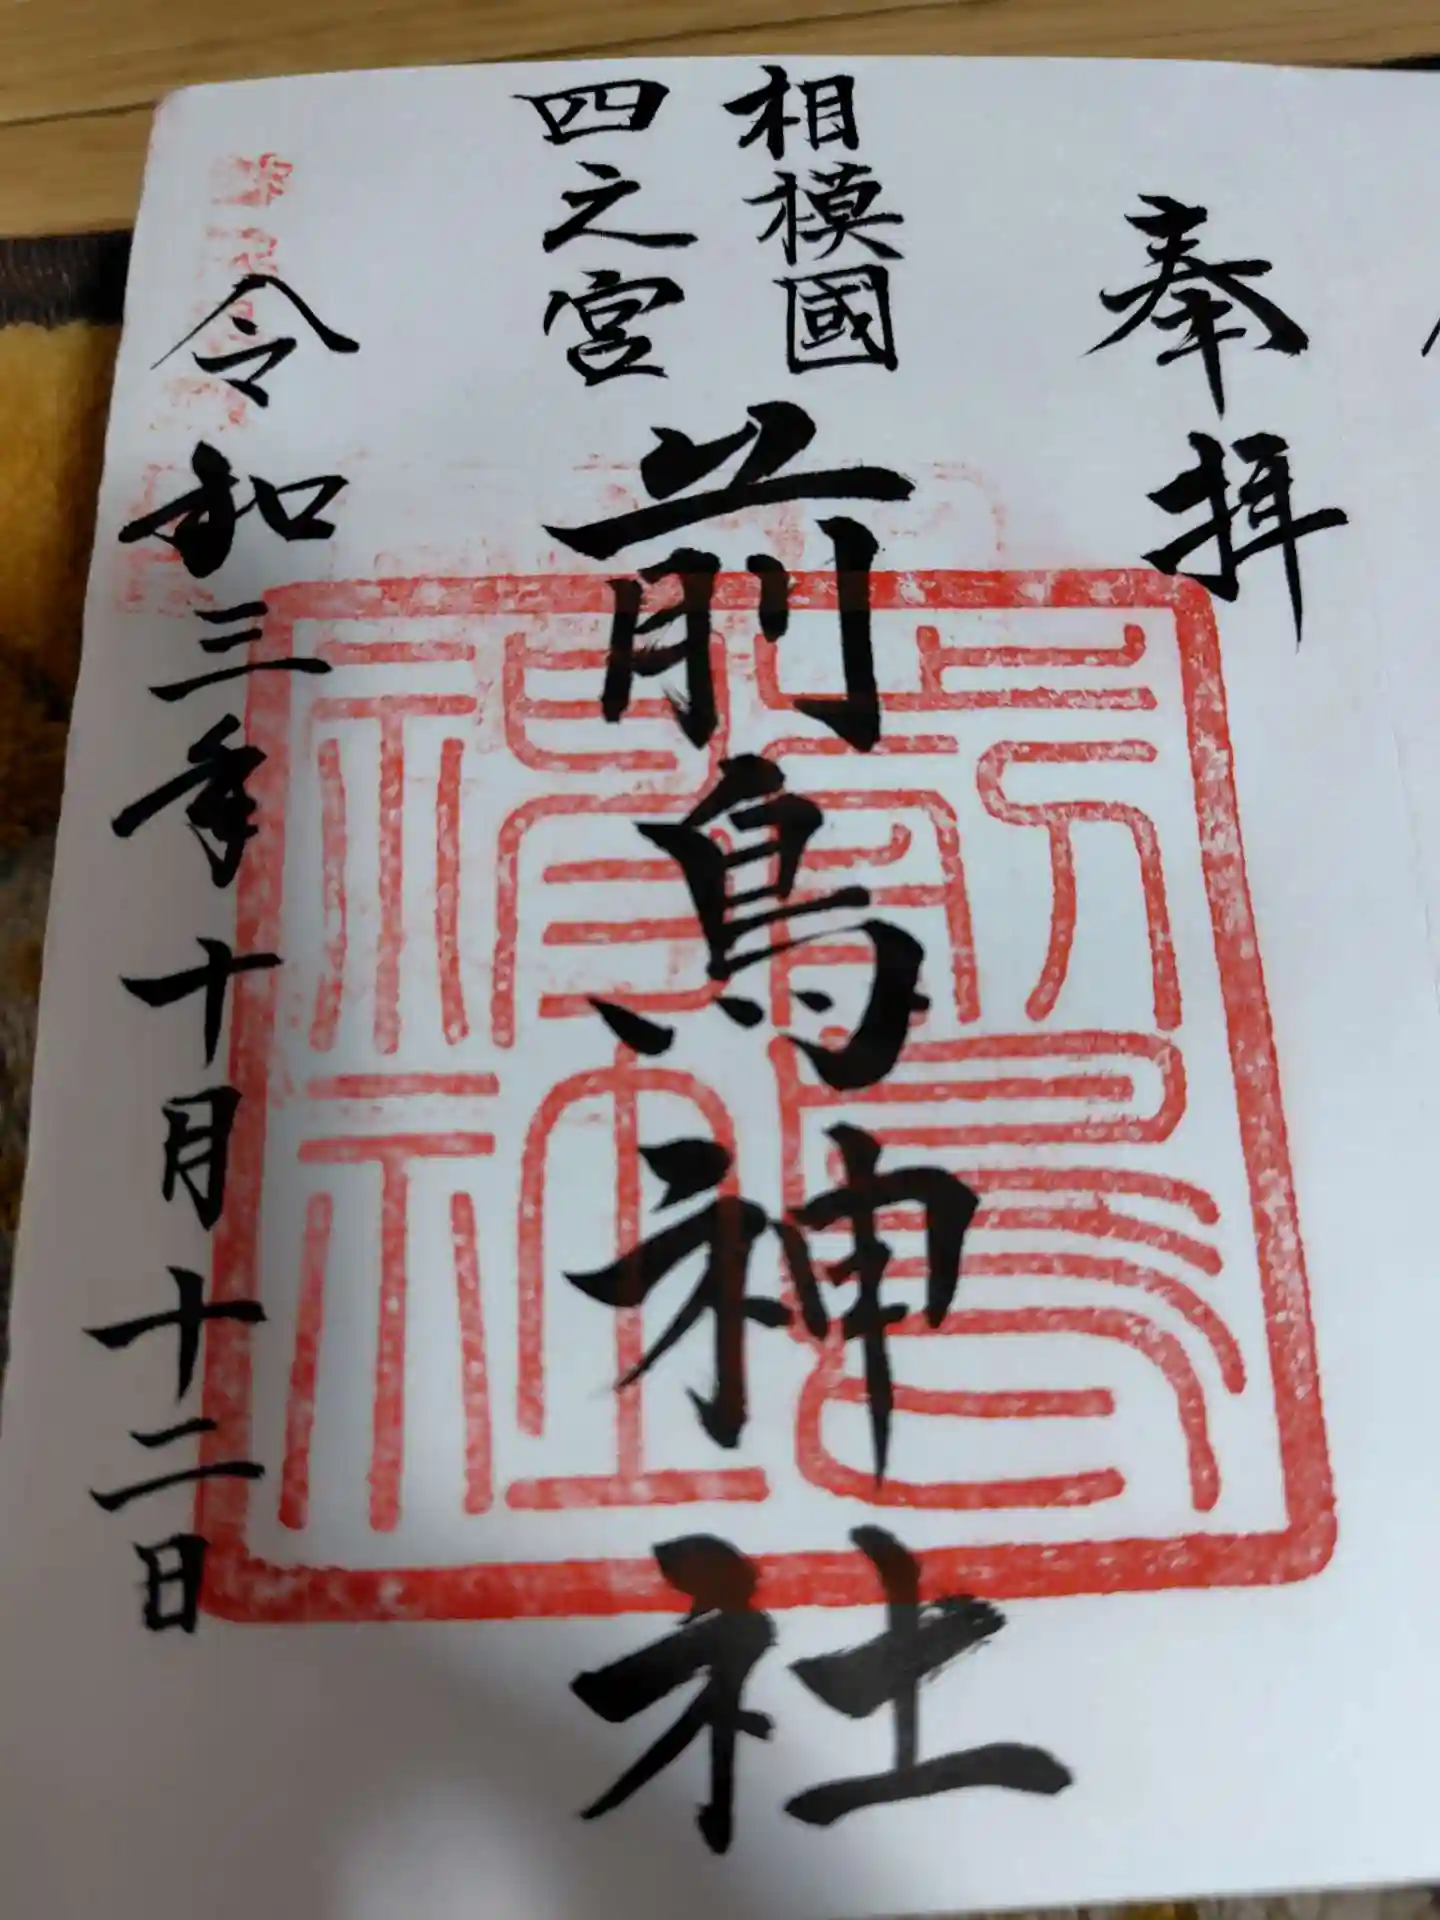 奉拝
相模國
四之宮
前鳥神社
令和三年十月十二日